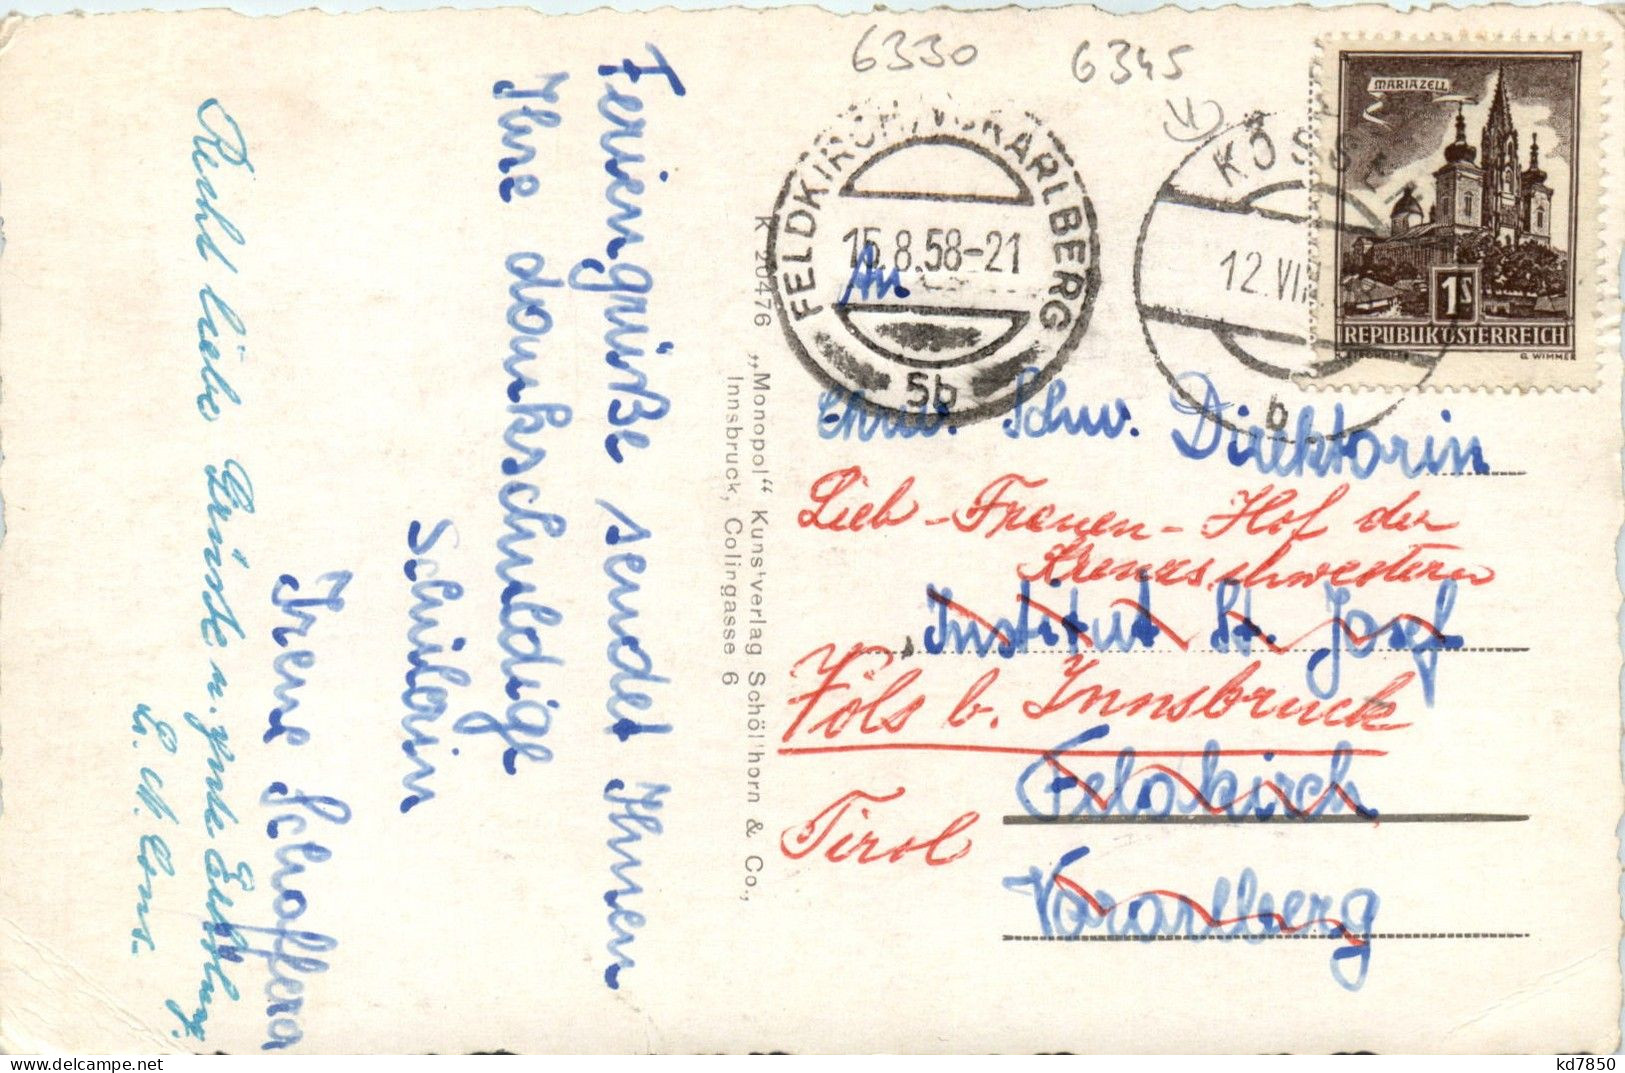 Feriengrüße sendet Ihnen
Ihre dankschuldige
Schülerin
Irene Schafferer
Recht liebe Grüße u. gute Erholung.
K 20476 „Monopol“ Kunstverlag Schöllhorn & Co.,
Innsbruck, Colingasse 6
6330
6345
FELDKIRCH/VORARLBERG
15.8.58-21
5b
KÖSSEN
12.VI
b
MARIAZELL
1S
REPUBLIK ÖSTERREICH
G. WIMMER
An
Ehrw. Schw. Direktorin
Lieb-Frauen-Hof der
Kreuzschwestern
Institut St. Josef
Völs b. Innsbruck
Feldkirch
Tirol
Vorarlberg
kd7850